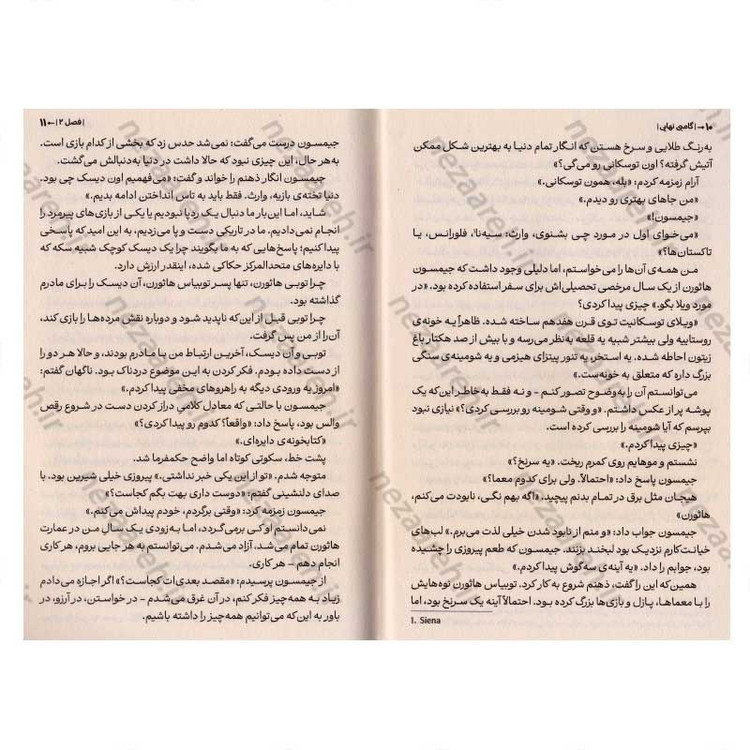 ۱۰ ← | گامبی نهایی |
به رنگ طلایی و سرخ هستن که انگار تمام دنیا به بهترین شکل ممکن
آتیش گرفته؟ اون توسکانی رو می‌گی؟»
آرام زمزمه کردم: «بله، همون توسکانی.»
«من جاهای بهتری رو دیدم.»
«جیمسون!»
«می‌خوای اول در مورد چی بشنوی، وارث: سیه‌نا۱، فلورانس، یا
تاکستان‌ها؟»
من همه‌ی آن‌ها را می‌خواستم، اما دلیلی وجود داشت که جیمسون
هاثورن از یک سال مرخصی تحصیلی‌اش برای سفر استفاده کرده بود. «در
مورد ویلا بگو.» چیزی پیدا کردی؟
«ویلای توسکانیت توی قرن هفدهم ساخته شده. ظاهراً یه خونه‌ی
روستاییه ولی بیشتر شبیه یه قلعه به‌نظر می‌رسه و با بیش از صد هکتار باغ
زیتون احاطه شده. یه استخر، یه تنور پیتزای هیزمی و یه شومینه‌ی سنگی
بزرگ داره که متعلق به خونه‌ست.»
می‌توانستم آن را به‌وضوح تصور کنم – و نه فقط به‌خاطر این‌که یک
پوشه پر از عکس داشتم. «و وقتی شومینه رو بررسی کردی؟» نیازی نبود
بپرسم که آیا شومینه را بررسی کرده است.
«چیزی پیدا کردم.»
نشستم و موهایم روی کمرم ریخت. «یه سرنخ؟»
جیمسون پاسخ داد: «احتمالاً. ولی برای کدوم معما؟»
هیجان مثل برق در تمام بدنم پیچید. «اگه بهم نگی، نابودت می‌کنم،
هاثورن»
جیمسون جواب داد: «و منم از نابود شدن خیلی لذت می‌برم.» لب‌های
خیانت‌کارم نزدیک بود لبخند بزنند. جیمسون که طعم پیروزی را چشیده
بود، جوابم را داد. «یه آینه‌ی سه‌گوش پیدا کردم.»
همین‌که این را گفت، ذهنم شروع به کار کرد. توبیاس هاثورن نوه‌هایش
را با معماها، پازل و بازی‌ها بزرگ کرده بود. احتمالاً آینه یک سرنخ بود، اما
1. Siena
| فصل ۲ | ← ۱۱
جیمسون درست می‌گفت: نمی‌شد حدس زد که بخشی از کدام بازی است.
به‌هر حال، این چیزی نبود که حالا داشت در دنیا به‌دنبالش می‌گشت.
جیمسون انگار ذهنم را خواند و گفت: «می‌فهمیم اون دیسک چی بود.
دنیا تخته‌ی بازیه، وارث. فقط باید به تاس انداختن ادامه بدیم.»
شاید، اما این‌بار ما دنبال یک ردپا نبودیم یا یکی از بازی‌های پیرمرد را
انجام نمی‌دادیم. ما در تاریکی دست و پا می‌زدیم، به این امید که پاسخی
پیدا کنیم؛ پاسخ‌هایی که به ما بگویند چرا یک دیسک کوچک شبیه سکه که
با دایره‌های متحدالمرکز حکاکی شده، اینقدر ارزش دارد.
چرا توبی هاثورن، تنها پسر توبیاس هاثورن، آن دیسک را برای مادرم
گذاشته بود.
چرا توبی قبل از این‌که ناپدید شود و دوباره نقش مرده‌ها را بازی کند،
آن‌را از من پس گرفت.
توبی و آن دیسک، آخرین ارتباط من با مادرم بودند، و حالا هر دو را
از دست داده بودم. فکر کردن به این موضوع دردناک بود. ناگهان گفتم:
«امروز یه ورودی دیگه به راهروهای مخفی پیدا کردم.»
جیمسون با حالتی که معادل کلامی دراز کردن دست در شروع رقص
والس بود، پاسخ داد: «واقعاً؟ کدوم رو پیدا کردی؟»
«کتابخونه‌ی دایره‌ای.»
پشت خط، سکوتی کوتاه اما واضح حکمفرما شد.
متوجه شدم. «تو از این یکی خبر نداشتی.» پیروزی خیلی شیرین بود. با
صدای دلنشینی گفتم: «دوست داری بهت بگم کجاست؟»
جیمسون زمزمه کرد: «وقتی برگردم، خودم پیداش می‌کنم.»
نمی‌دانستم او کی برمی‌گردد، اما به‌زودی یک سال من در عمارت
هاثورن تمام می‌شد. آزاد می‌شدم. می‌توانستم به هر جایی بروم، هر کاری
انجام دهم – هر کاری.
از جیمسون پرسیدم: «مقصد بعدی‌ات کجاست؟» اگر اجازه می‌دادم
زیاد به همه‌چیز فکر کنم، در آن غرق می‌شدم – در خواستن، در آرزو، در
باور به این‌که می‌توانیم همه‌چیز را داشته باشیم.
nezaareh.ir